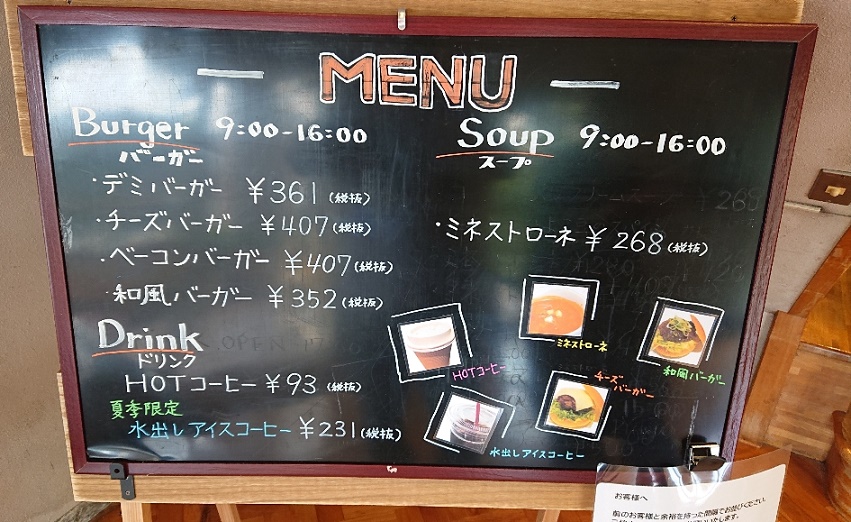 MENU
Burger 9:00-16:00
バーガー
・デミバーガー ¥361(税抜)
・チーズバーガー ¥407(税抜)
・ベーコンバーガー ¥407(税抜)
・和風バーガー ¥352(税抜)
Drink
ドリンク
HOTコーヒー ¥93(税抜)
夏季限定
水出しアイスコーヒー ¥231(税抜)
Soup 9:00-16:00
スープ
・ミネストローネ ¥268(税抜)
HOTコーヒー
ミネストローネ
和風バーガー
チーズ
バーガー
水出しアイスコーヒー
お客様へ
前のお客様と余裕を持った間隔でお並びください。